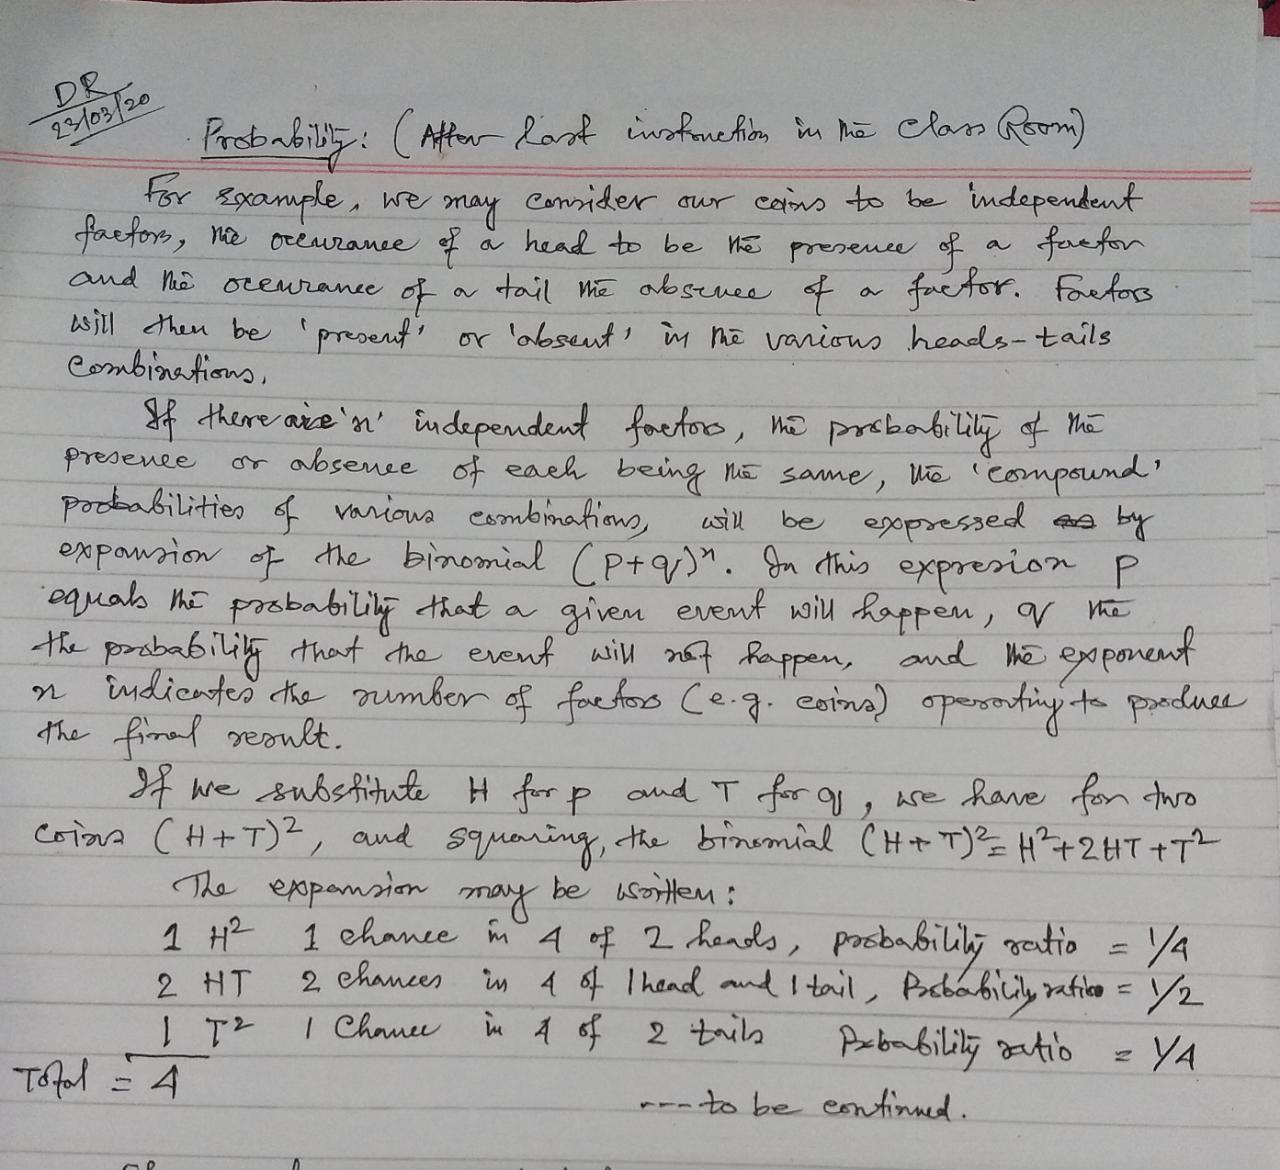 DR
23/03/20
Probability: (After last instruction in the Class Room)
For Example, we may consider our coins to be independent
factors, the occurance of a head to be the presence of a factor
and the occurance of a tail the absence of a factor. Factors
will then be 'present' or 'absent' in the various heads-tails
Combinations.
If there are 'n' independent factors, the probability of the
presence or absence of each being the same, the 'compound'
probabilities of various combinations, will be expressed as by
expansion of the binomial (P+q)ⁿ. In this expresion P
equals the probability that a given event will happen, q the
the probability that the event will not happen, and the exponent
n indicates the number of factors (e.g. coins) operating to produce
the final result.
If we substitute H for p and T for q, we have for two
Coins (H+T)², and squaring, the binomial (H+T)²=H²+2HT+T²
The expansion may be written:
1 H² 1 chance in 4 of 2 heads, probability ratio = 1/4
2 HT 2 chances in 4 of 1 head and 1 tail, Probability ratio = 1/2
1 T² 1 Chance in 4 of 2 tails Probability ratio = 1/4
Total = 4
---to be continued.